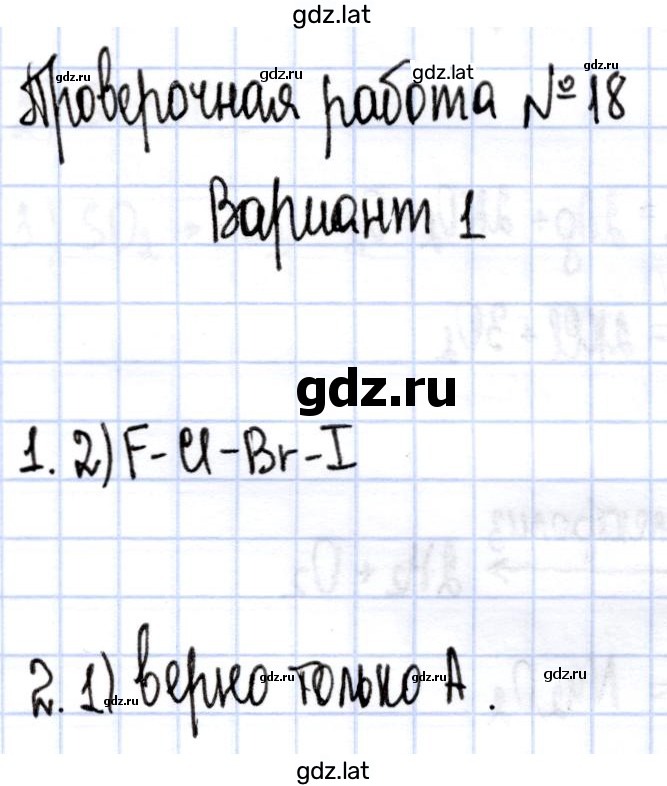 gdz.lat
gdz.ru gdz.ru gdz.lat gdz.ru
Проверочная работа № 18
Вариант 1
gdz.ru
1. 2) F - Cl - Br - I
2. 1) верно только А.
gdz.ru gdz.ru gdz.ru gdz.ru
gdz.lat